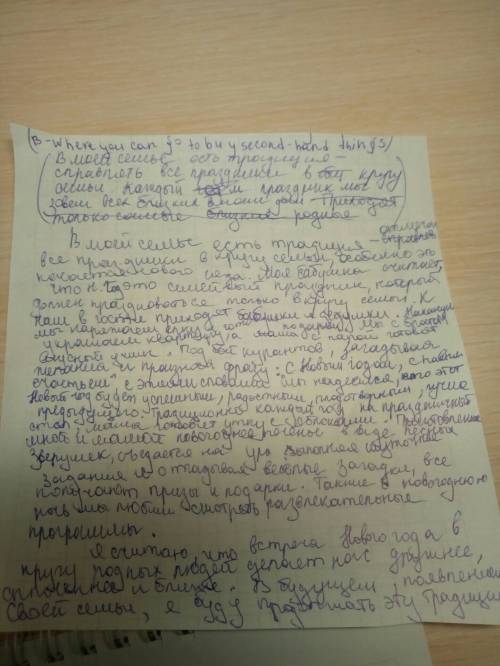 (B-Where you can go to buy second-hand things)
В моей семье есть традиция -
справлять все праздники в кругу
семьи. Каждый праздник мы
зовем всех близких в наш дом. Приходят
только самые близкие родные
В моей семье есть традиция - отмечать
все праздники в кругу семьи, особенно это
касается нового года. Моя бабушка считает,
что Н. Год это семейный праздник, который
должен праздноваться только в кругу семьи. К
нам в гости приходят бабушки и дедушки. Накануне
мы наряжаем елку, подарки, мы с братом
украшаем квартиру, а мама с папой готовят
вкусный ужин. Под бой курантов, загадывая
желания и произнося фразу: "С Новым годом, с новым
счастьем", с этими словами мы надеемся, что этот
Новый год будет успешным, радостным, плодотворным, чем
предыдущего. Традиционно каждый год на праздничный
стол мама готовит утку с яблоками. Приготовленное
мной и мамой новогоднее печенье в виде лесных
зверушек, съедается на ура. Выполняя шуточные
задания и отгадывая веселые загадки, все
получают призы и подарки. Также в новогоднюю
ночь мы любим смотреть развлекательные
программы.
Я считаю, что встреча Нового года в
кругу родных людей делает нас дружнее,
сплоченнее и ближе. В будущем, с появлением
своей семьи, я буду продолжать эту традицию